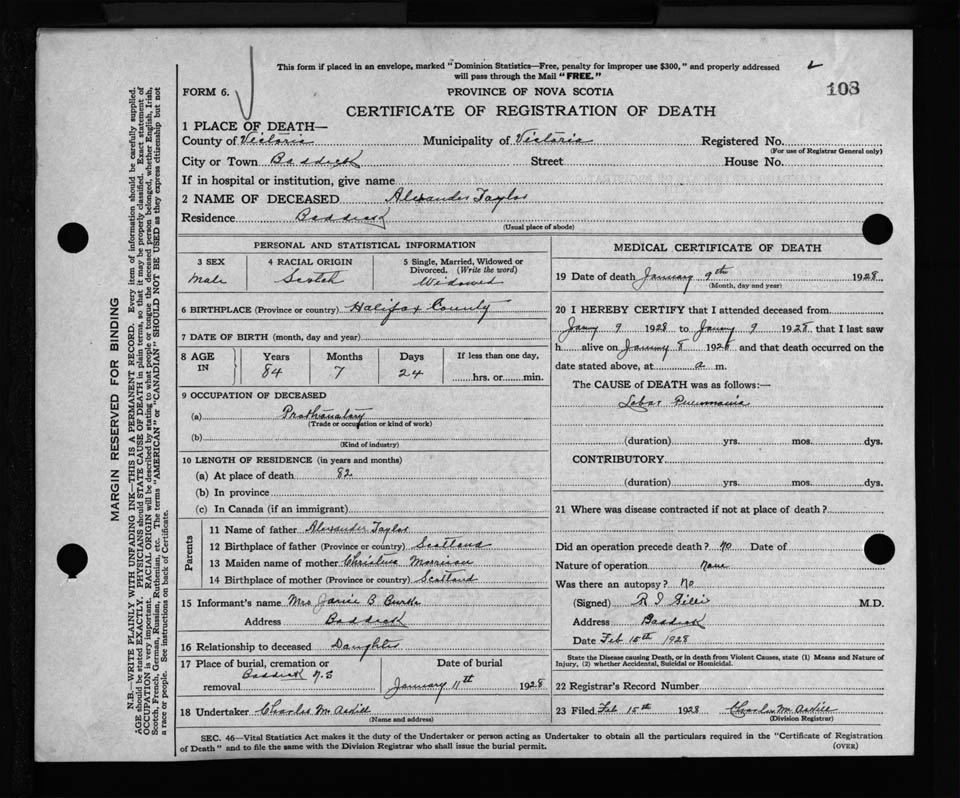 This form if placed in an envelope, marked "Dominion Statistics—Free, penalty for improper use $300," and properly addressed
will pass through the Mail "FREE."
108
FORM 6.
PROVINCE OF NOVA SCOTIA
CERTIFICATE OF REGISTRATION OF DEATH
1 PLACE OF DEATH—
County of Victoria Municipality of Victoria Registered No.
(For use of Registrar General only)
City or Town Baddeck Street House No.
If in hospital or institution, give name
2 NAME OF DECEASED Alexander Taylor
Residence Baddeck
(Usual place of abode)
PERSONAL AND STATISTICAL INFORMATION
3 SEX
Male
4 RACIAL ORIGIN
Scotch
5 Single, Married, Widowed or
Divorced. (Write the word)
Widowed
6 BIRTHPLACE (Province or country) Halifax County
7 DATE OF BIRTH (month, day and year)
8 AGE IN
Years Months Days If less than one day,
84 7 24 hrs. or min.
9 OCCUPATION OF DECEASED
(a) Prothonotary
(Trade or occupation or kind of work)
(b)
(Kind of industry)
10 LENGTH OF RESIDENCE (in years and months)
(a) At place of death 82
(b) In province
(c) In Canada (if an immigrant)
Parents
11 Name of father Alexander Taylor
12 Birthplace of father (Province or country) Scotland
13 Maiden name of mother Christina Morrison
14 Birthplace of mother (Province or country) Scotland
15 Informant's name Mrs B
Address Baddeck
16 Relationship to deceased Daughter
17 Place of burial, cremation or Date of burial
removal Baddeck N.S January 11th 1928
18 Undertaker Charles McAskill
(Name and address)
MEDICAL CERTIFICATE OF DEATH
19 Date of death January 9th 1928
(Month, day and year)
20 I HEREBY CERTIFY that I attended deceased from
9 1928 to 9 1928 that I last saw
h alive on 8 1928 and that death occurred on the
date stated above, at a m.
The CAUSE of DEATH was as follows:—
Lobar Pneumonia
(duration) yrs. mos. dys.
CONTRIBUTORY
(duration) yrs. mos. dys.
21 Where was disease contracted if not at place of death?
Did an operation precede death? No Date of
Nature of operation None
Was there an autopsy? No
(Signed) M.D.
Address Baddeck
Date Feb 15th 1928
State the Disease causing Death, or in death from Violent Causes, state (1) Means and Nature of
Injury, (2) whether Accidental, Suicidal or Homicidal.
22 Registrar's Record Number
23 Filed Feb 15th 1928 Charles McAskill
(Division Registrar)
SEC. 46—Vital Statistics Act makes it the duty of the Undertaker or person acting as Undertaker to obtain all the particulars required in the "Certificate of Registration
of Death" and to file the same with the Division Registrar who shall issue the burial permit. (OVER)
MARGIN RESERVED FOR BINDING
N.B.—WRITE PLAINLY WITH UNFADING INK—THIS IS A PERMANENT RECORD. Every item of information should be carefully supplied.
AGE should be stated EXACTLY. PHYSICIANS should STATE CAUSE OF DEATH in plain terms, so that it may be properly classified. Exact statement of
OCCUPATION is very important. RACIAL ORIGIN will be described by stating to what people or tongue the deceased person belonged, whether English, Irish,
Scotch, French, German, Russian, Ruthenian, etc. The terms "AMERICAN" or "CANADIAN" SHOULD NOT BE USED as they express citizenship but not
a race or people. See instructions on back of Certificate.